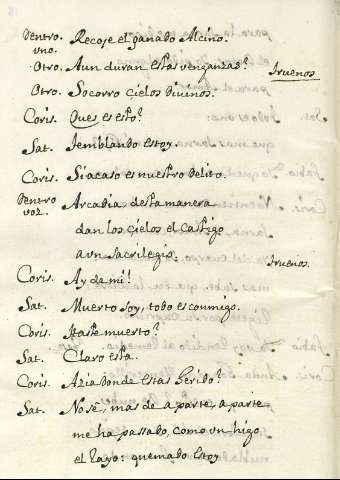 Dentro uno. Recoje el ganado Alcino.
Otro. Aun duran estas venganzas? truenos
Otro. Socorro çielos Divinos.
Coris. Ques es esto?
Sat. Temblando estoy.
Coris. Si acaso es nuestro delito.
Dentro voz. Arcadia desta manera
dan los çielos el castigo
a un Sacrilegio. truenos.
Coris. Ay de mi!
Sat. Muerto soy, todo es conmigo.
Coris. Haste muerto?
Sat. Claro esta.
Coris. Azia donde estas herido?
Sat. No sé, mas de a parte, a parte
me ha passado, como un higo
el rayo: quemado estoy